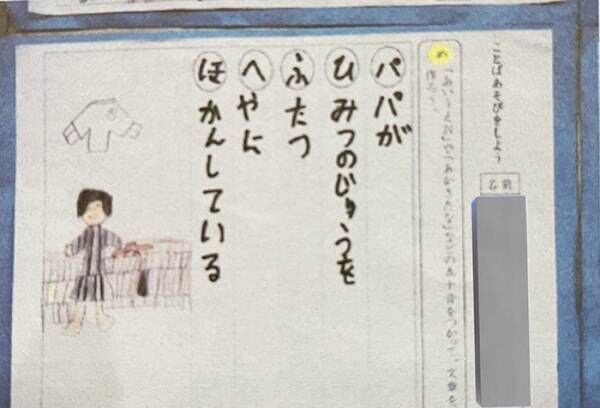 ことばあそびをしよう
名前
め
「あいうえお」や「あかさたな」などの五十音をつかって、文章を
作ろう。
パパが
ひみつのじゅうを
ふたつ
へやに
ほかんしている